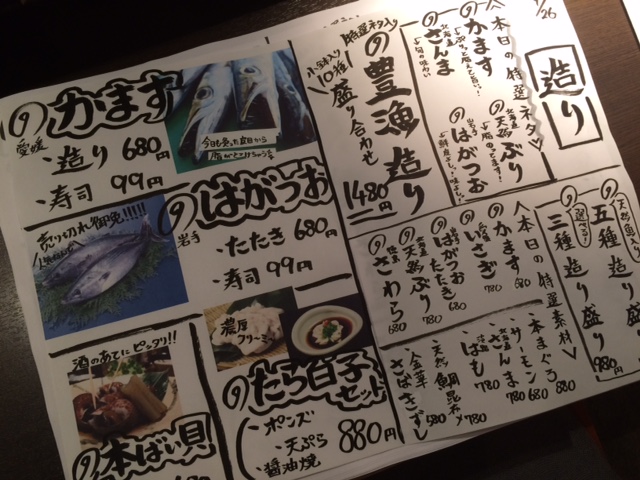 かます
愛媛
・造り 680円
・寿司 99円
今日も笑った真白から
はがつお
岩手
・たたき 680円
・寿司 99円
売り切れ御免!!!!!
酒のあてにピッタリ!!
本ばい貝
濃厚
クリーミー
たら白子
セット
・ポンズ
・天ぷら
・醤油焼
880円
1/26
造り
本日の特選ネタ
かます
北海道
さんま
北海道
天然ぶり
岩手
はがつお
特選ネタ入り
豊漁造り
10種盛り合わせ
1480円
天然魚
五種造り盛り
選べる!
三種造り盛り
980円
本日の特選素材
かます 780
いさぎ 780
はがつおたたき 680
北海道
天然ぶり 680
さわら 680
本まぐろ 880
サーモン 680
さんま 680
はも 780
天然鯛昆布〆 780
金華さばきずし 580